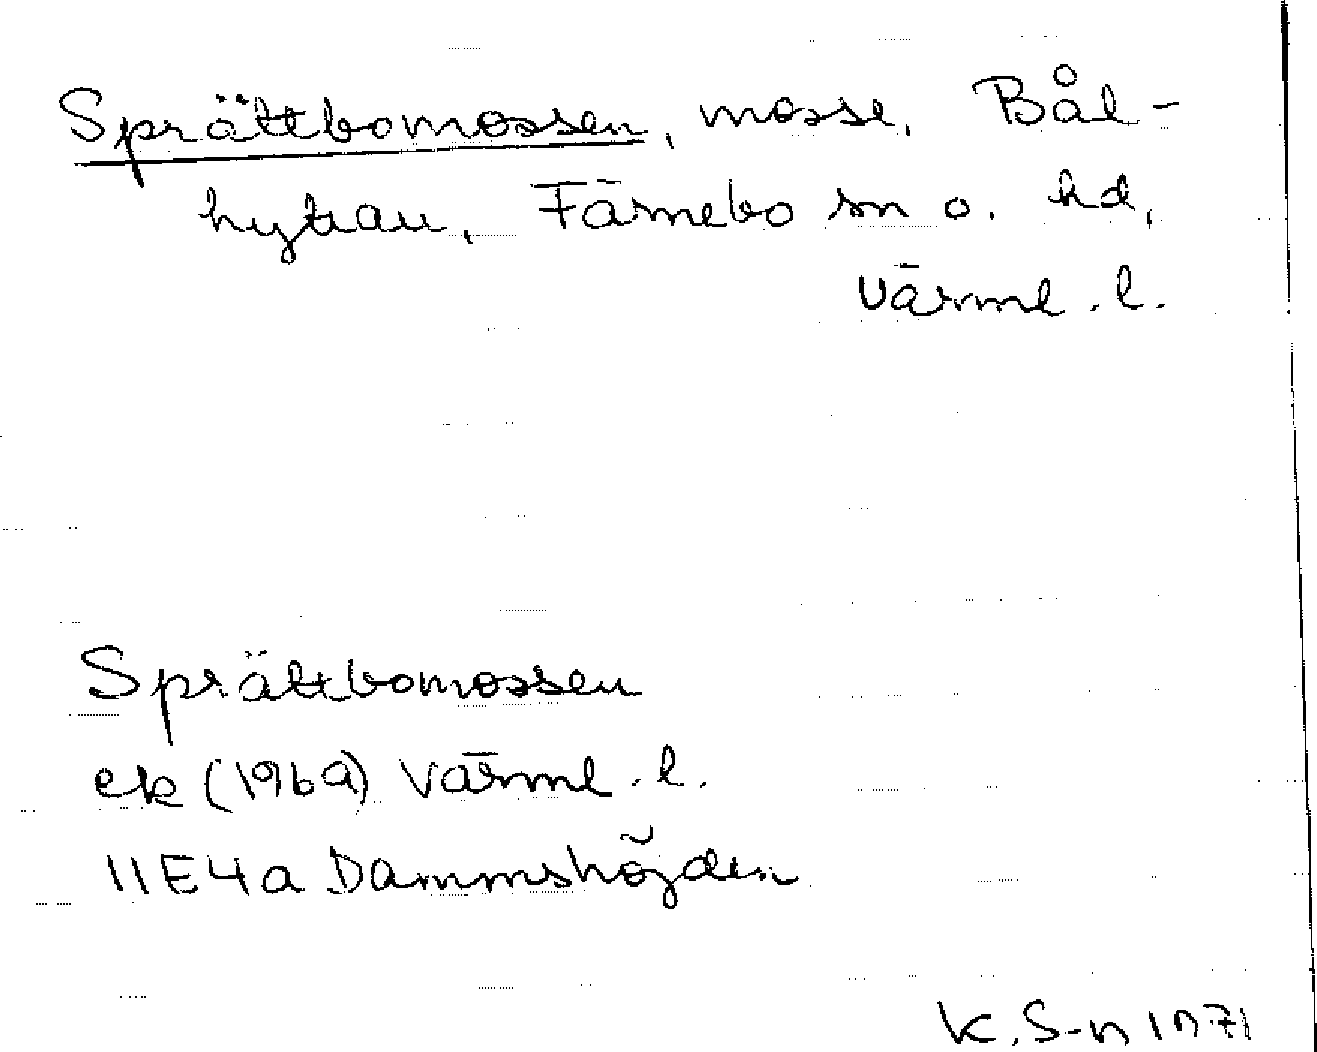 Sprättbomossen, mosse, Bål-
hyttan, Färnebo sn o. hd,
Värml. l.
Sprättbomossen
ek (1969) Värml. l.
11E4a Dammshöjden
K. S-n 1971